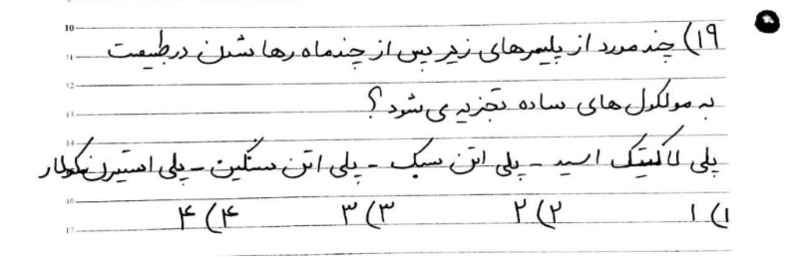 ۱۹) چند مورد از پلیمرهای زیر پس از چند ماه رها شدن در طبیعت
به مولکول های ساده تجزیه می شود ؟
پلی لاکتیک اسید - پلی اتن سبک - پلی اتن سنگین - پلی استیرن
۱) ۱ ۲) ۲ ۳) ۳ ۴) ۴